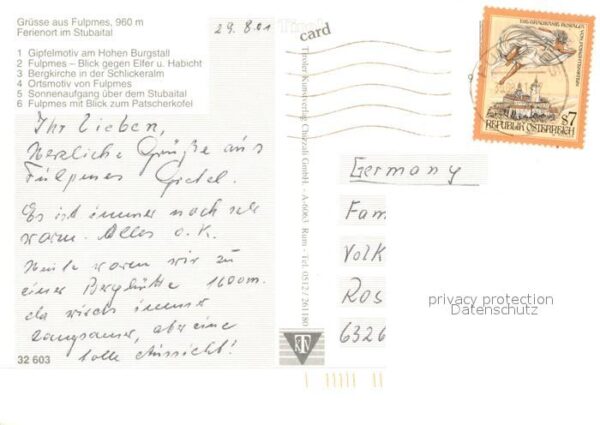 Grüsse aus Fulpmes, 960 m
Ferienort im Stubaital
1 Gipfelmotiv am Hohen Burgstall
2 Fulpmes – Blick gegen Elfer u. Habicht
3 Bergkirche in der Schlickeralm
4 Ortsmotiv von Fulpmes
5 Sonnenaufgang über dem Stubaital
6 Fulpmes mit Blick zum Patscherkofel
29.8.01
Ihr Lieben,
Herzliche Grüße aus
Fulpmes
Es ist immer noch sehr
warm. Alles o.K.
Heute waren wir zu
einer Berghütte 1600m.
da wirds immer
langsamer, aber eine
tolle Aussicht!
32 603
Tirol
card
Tiroler Kunstverlag Chizzali GmbH. - A-6063 Rum - Tel. 0512/261180
S7
REPUBLIK ÖSTERREICH
Germany
Fam
Volk
Ros
6326
privacy protection
Datenschutz